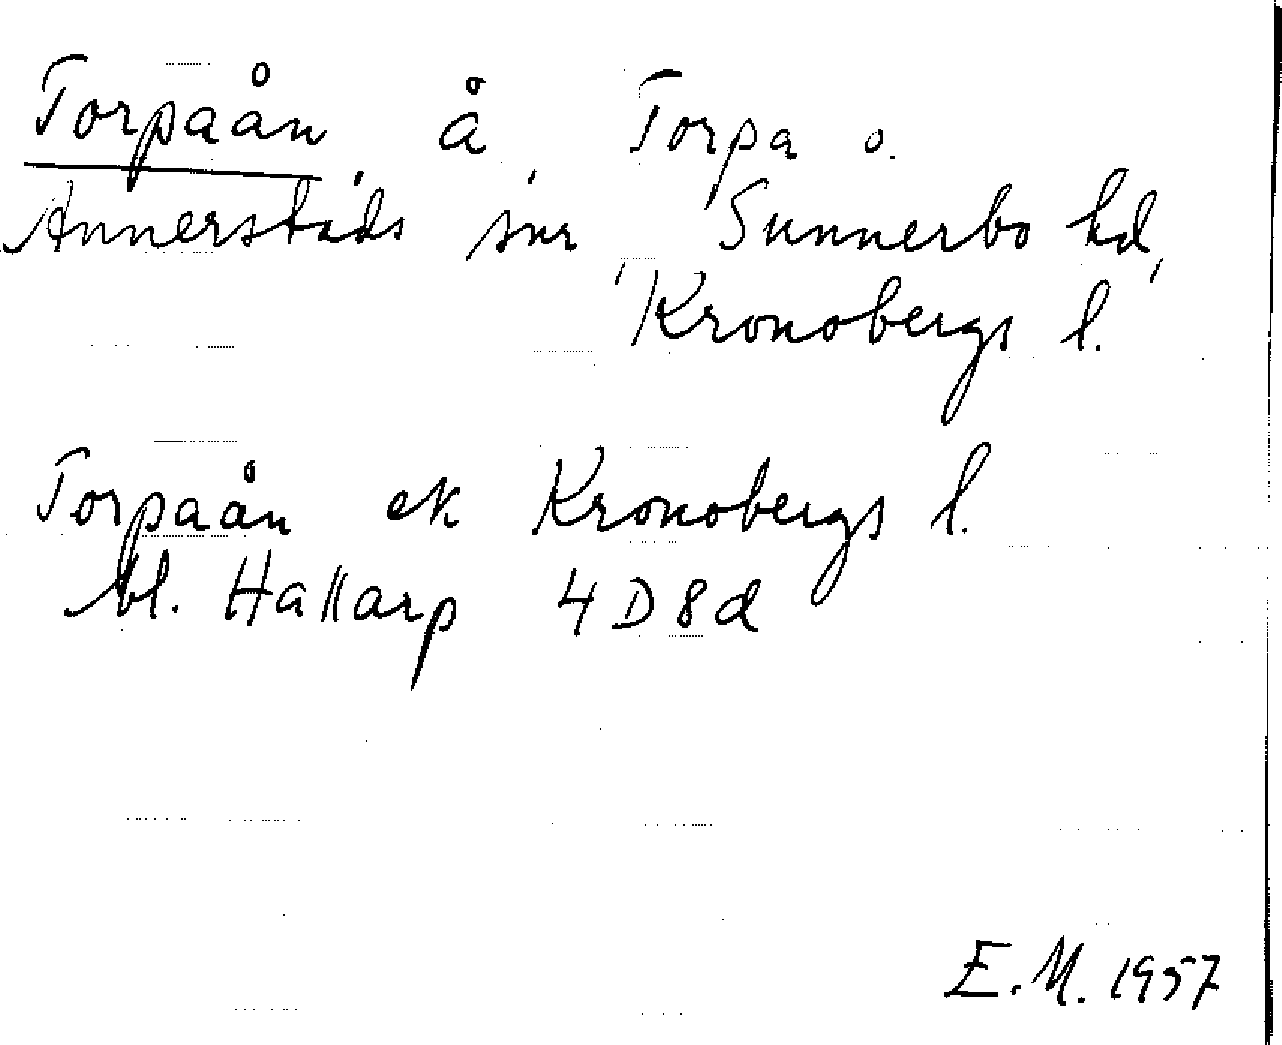 Torpaån, å, Torpa o.
Annerstads snr, Sunnerbo hd,
Kronobergs l.
Torpaån ek Kronobergs l.
bl. Hallarp 4D8d
E.M. 1957